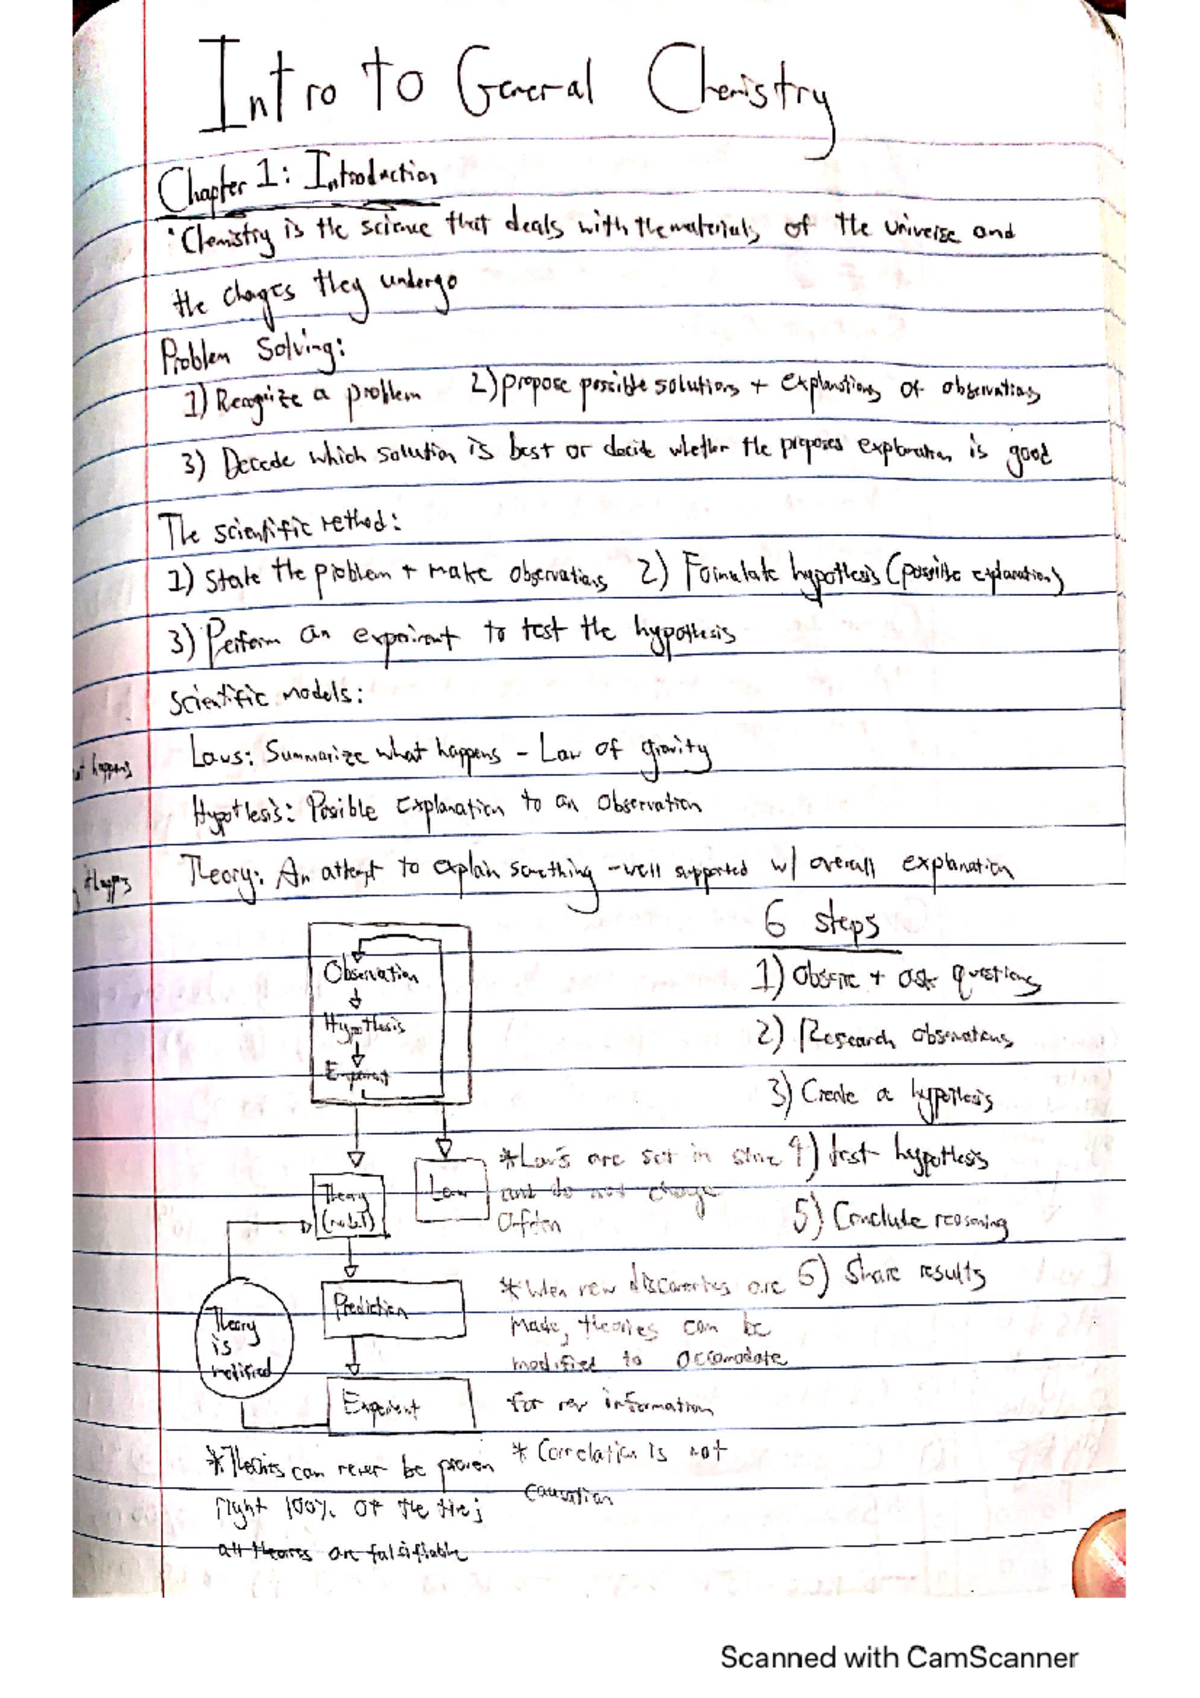 Intro to General Chemistry
Chapter 1: Introduction
• Chemistry is the science that deals with the materials of the universe and
the changes they undergo
Problem Solving:
1) Recognize a problem 2) propose possible solutions + explanations of observations
3) Decede which solution is best or decide whether the proposes explanation is good
The scientific method:
1) State the problem + make observations 2) Formulate hypothesis (possible explanation)
3) Perform an experiment to test the hypothesis
Scientific models:
Laws: Summarize what happens - Law of gravity
happens
Hypothesis: Possible Explanation to an Observation
Theory: An attempt to explain something - well supported w/ overall explanation
6 steps
1) Observe + ask questions
2) Research observations
3) Create a hypothesis
4) test hypothesis
5) Conclude reasoning
6) Share results
Observation
Hypothesis
Experiment
Theory
(model)
Law
Prediction
Experiment
Theory
is
modified
* Laws are set in stone
and do not change
Often
* When new discoveries are
made, theories can be
modified to accomodate
for new information
* Correlation is not
causation
* Theories can never be proven
right 100% of the time;
all theories are falsifiable
Scanned with CamScanner